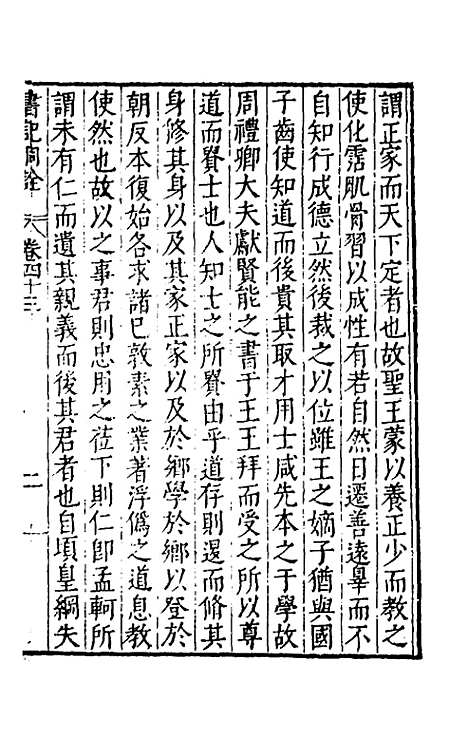 謂正家而天下定者也故聖王蒙以養正少而教之
使化霑肌骨習以成性有若自然日遷善遠辠而不
自知行成德立然後裁之以位雖王之嫡子猶與國
子齒使知道而後貴其取才用士咸先本之于學故
周禮卿大夫獻賢能之書于王王拜而受之所以尊
道而貴士也人知士之所貴由乎道存則退而脩其
身修其身以及其家正家以及於鄉學於鄉以登於
朝反本復始各求諸已敦素之業著浮僞之道息教
使然也故以之事君則忠用之莅下則仁卽孟軻所
謂未有仁而遺其親義而後其君者也自頃皇綱失
書記洞詮 卷四十三 二